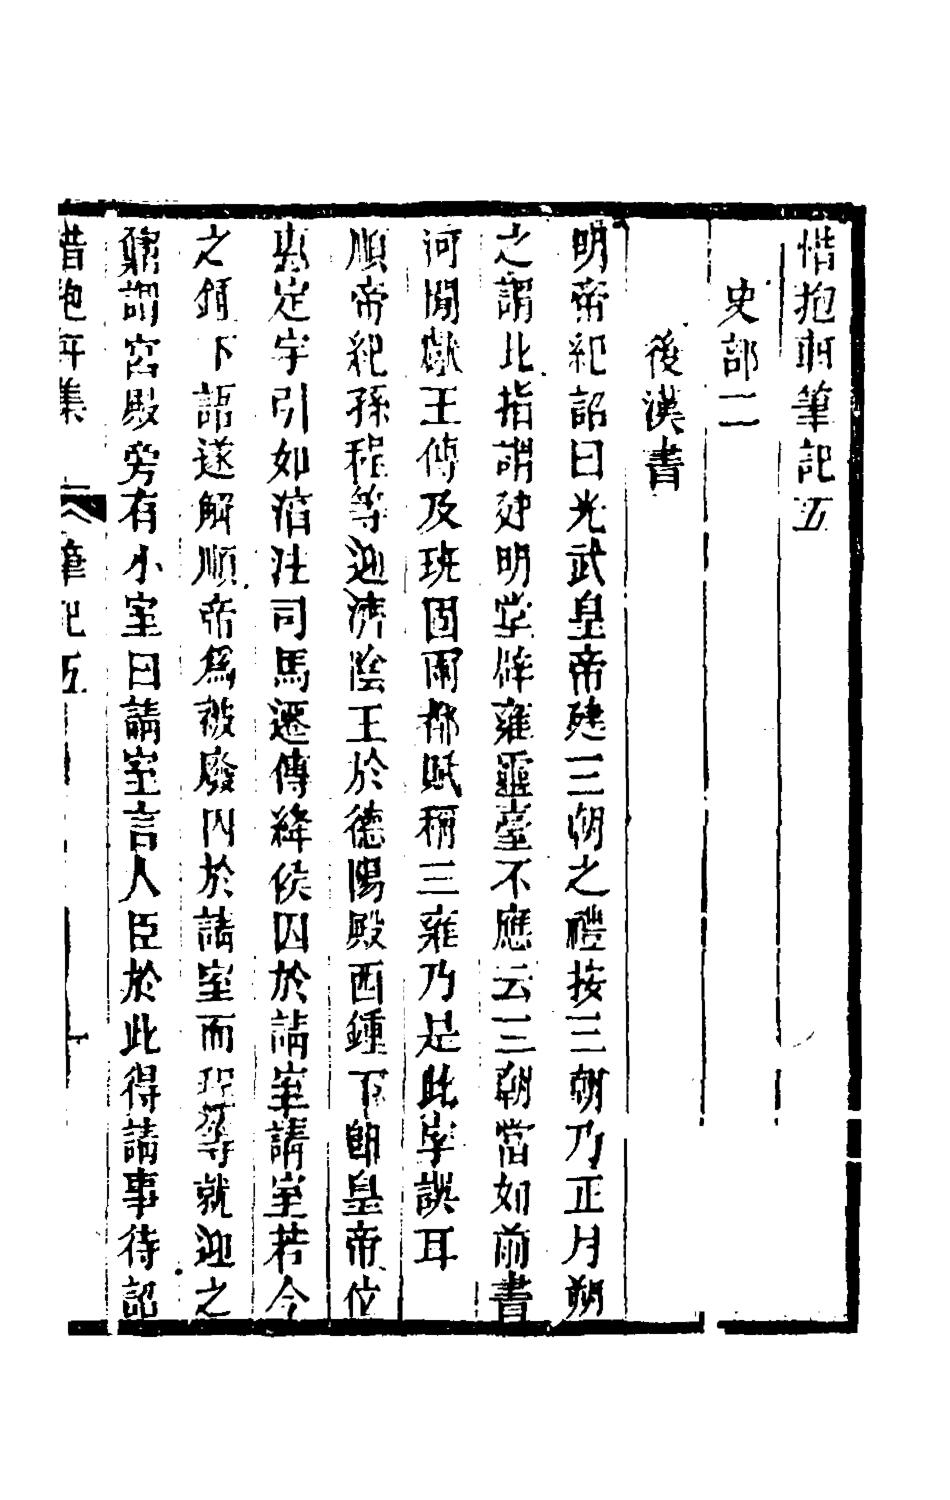 惜抱軒筆記五
史部二
後漢書
明帝紀詔曰光武皇帝建三朝之禮按三朝乃正月朔
之謂此指謂建明堂辟雍靈臺不應云三朝當如前書
河閒獻王傳及班固兩都賦稱三雍乃是此字誤耳
順帝紀孫程等迎濟陰王於德陽殿西鍾下卽皇帝位
惠定宇引如湻注司馬遷傳絳侯囚於請室請室若今
之鍾下語遂解順帝爲被廢囚於請室而程等就迎之
鼐謂宮殿旁有小室曰請室言人臣於此得請事待詔
惜抱軒集
筆記五
一